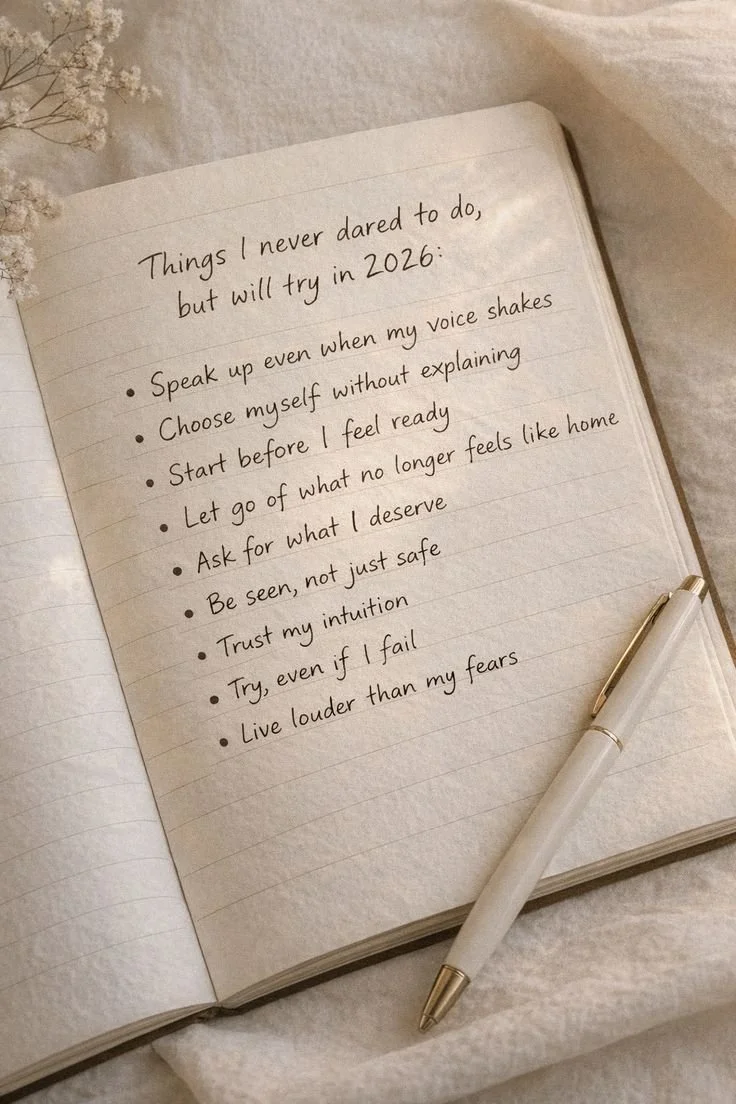 Things I never dared to do,
but will try in 2026:
• Speak up even when my voice shakes
• Choose myself without explaining
• Start before I feel ready
• Let go of what no longer feels like home
• Ask for what I deserve
• Be seen, not just safe
• Trust my intuition
• Try, even if I fail
• Live louder than my fears